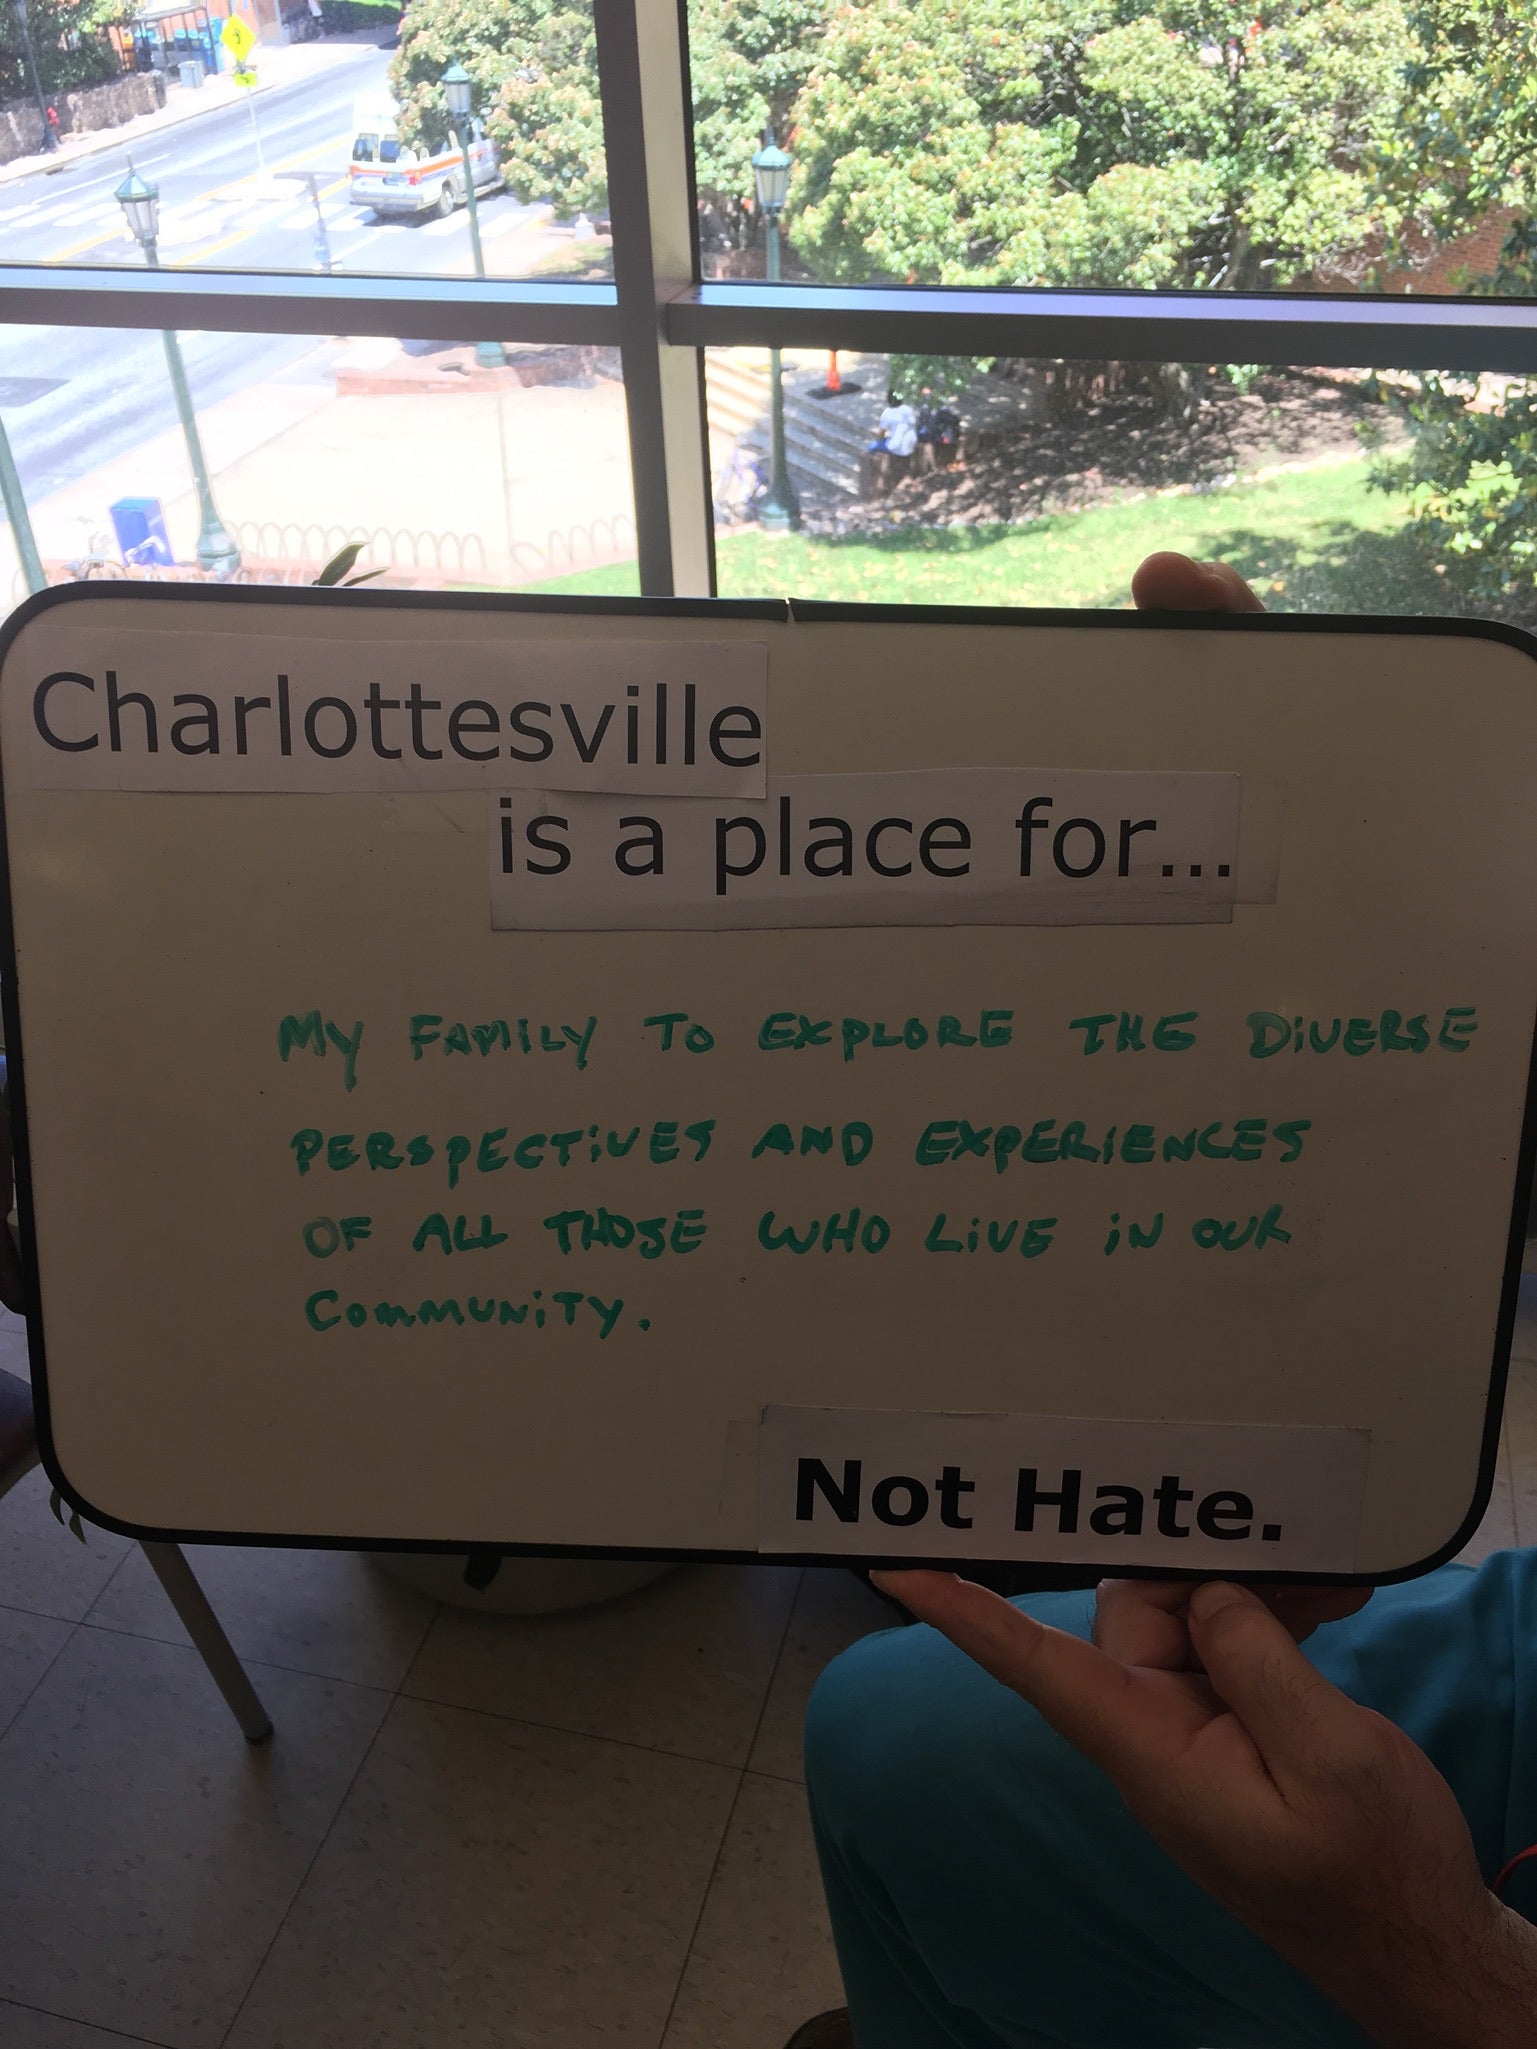 Charlottesville
is a place for...
MY FAMILY TO EXPLORE THE DIVERSE
PERSPECTIVES AND EXPERIENCES
OF ALL THOSE WHO LIVE IN OUR
COMMUNITY.
Not Hate.